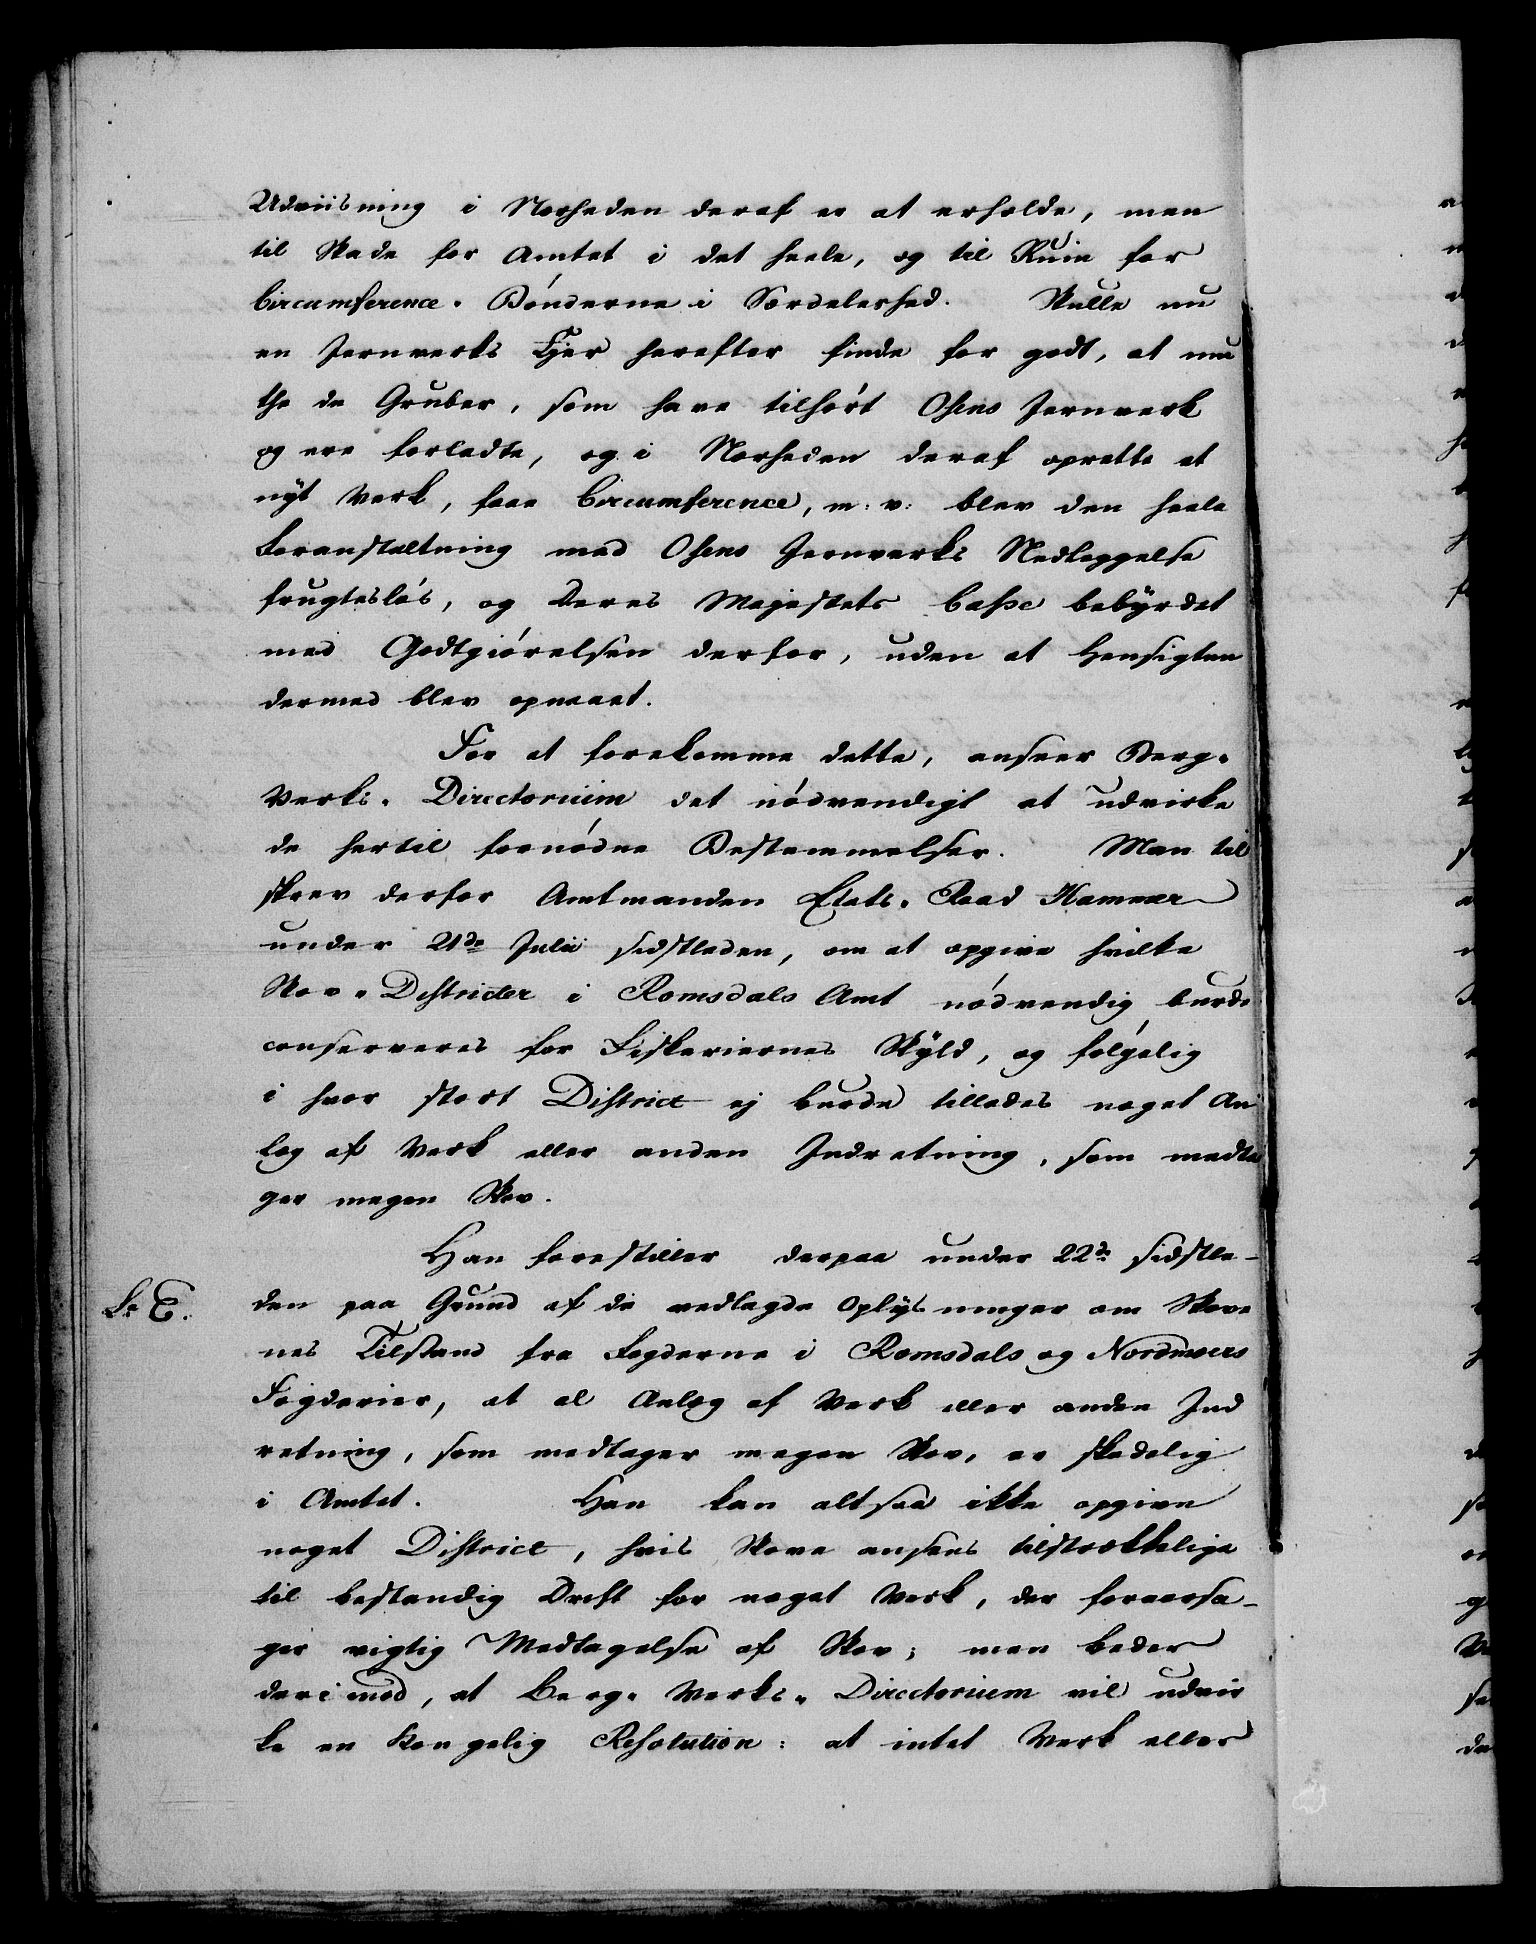 Udviisning i Nærheden deraf er at erholde, men
til Skade for Amtet i det heele, og til Ruin for
Circumference-Bønderne i Særdeleshed. Skulle nu
en Jernverks Ejer herefter finde for godt, at mu
the de Gruber, som have tilhørt Osens Jernverk
og ere forladte, og i Nærheden deraf oprette et
nÿt Verk, faae Circumference, m: v: blev den heele
Foranstaltning med Osens Jernverks Nedleggelse
frugtesløs, og Deres Majestets Casse bebÿrdet
med Godtgiørelsen derfor, uden at Hensigten
dermed blev opnaaet.
For at forekomme dette, anseer Berg-
Verks-Directorium det nødvendigt at udvirke
de hertil fornødne Bestemmelser. Man til
skrev derfor Amtmanden Etats-Raad Hammer
under 21de Julii sidstleden, om at opgive hvilke
Skov-Districter i Romsdals Amt nødvendig burde
conserveres for Fiskeriernes Skÿld, og følgelig
i hvor stort District ej burde tillades noget An
læg af Verk eller anden Indretning, som medta
ger megen Skov.
Han forestiller derpaa under 22de sidstle-
Lr E.
den paa Grund af de vedlagde Oplÿsninger om Skove
nes Tilstand fra Fogderne i Romsdals og Nordmøers
Fogderier, at al Anlæg af Verk eller anden Ind
retning, som medtager megen Skov, er skadelig
i Amtet. Han kan altsaa ikke opgive
noget District, hvis Skove ansees tilstrækkelige
til bestandig Drift for noget Verk, der foraarsa-
ger vigtig Medtagelse af Skov; men beder
derimod, at Berg-Verks-Directorium vil udvir
ke en Kongelig Resolution: at intet Verk eller